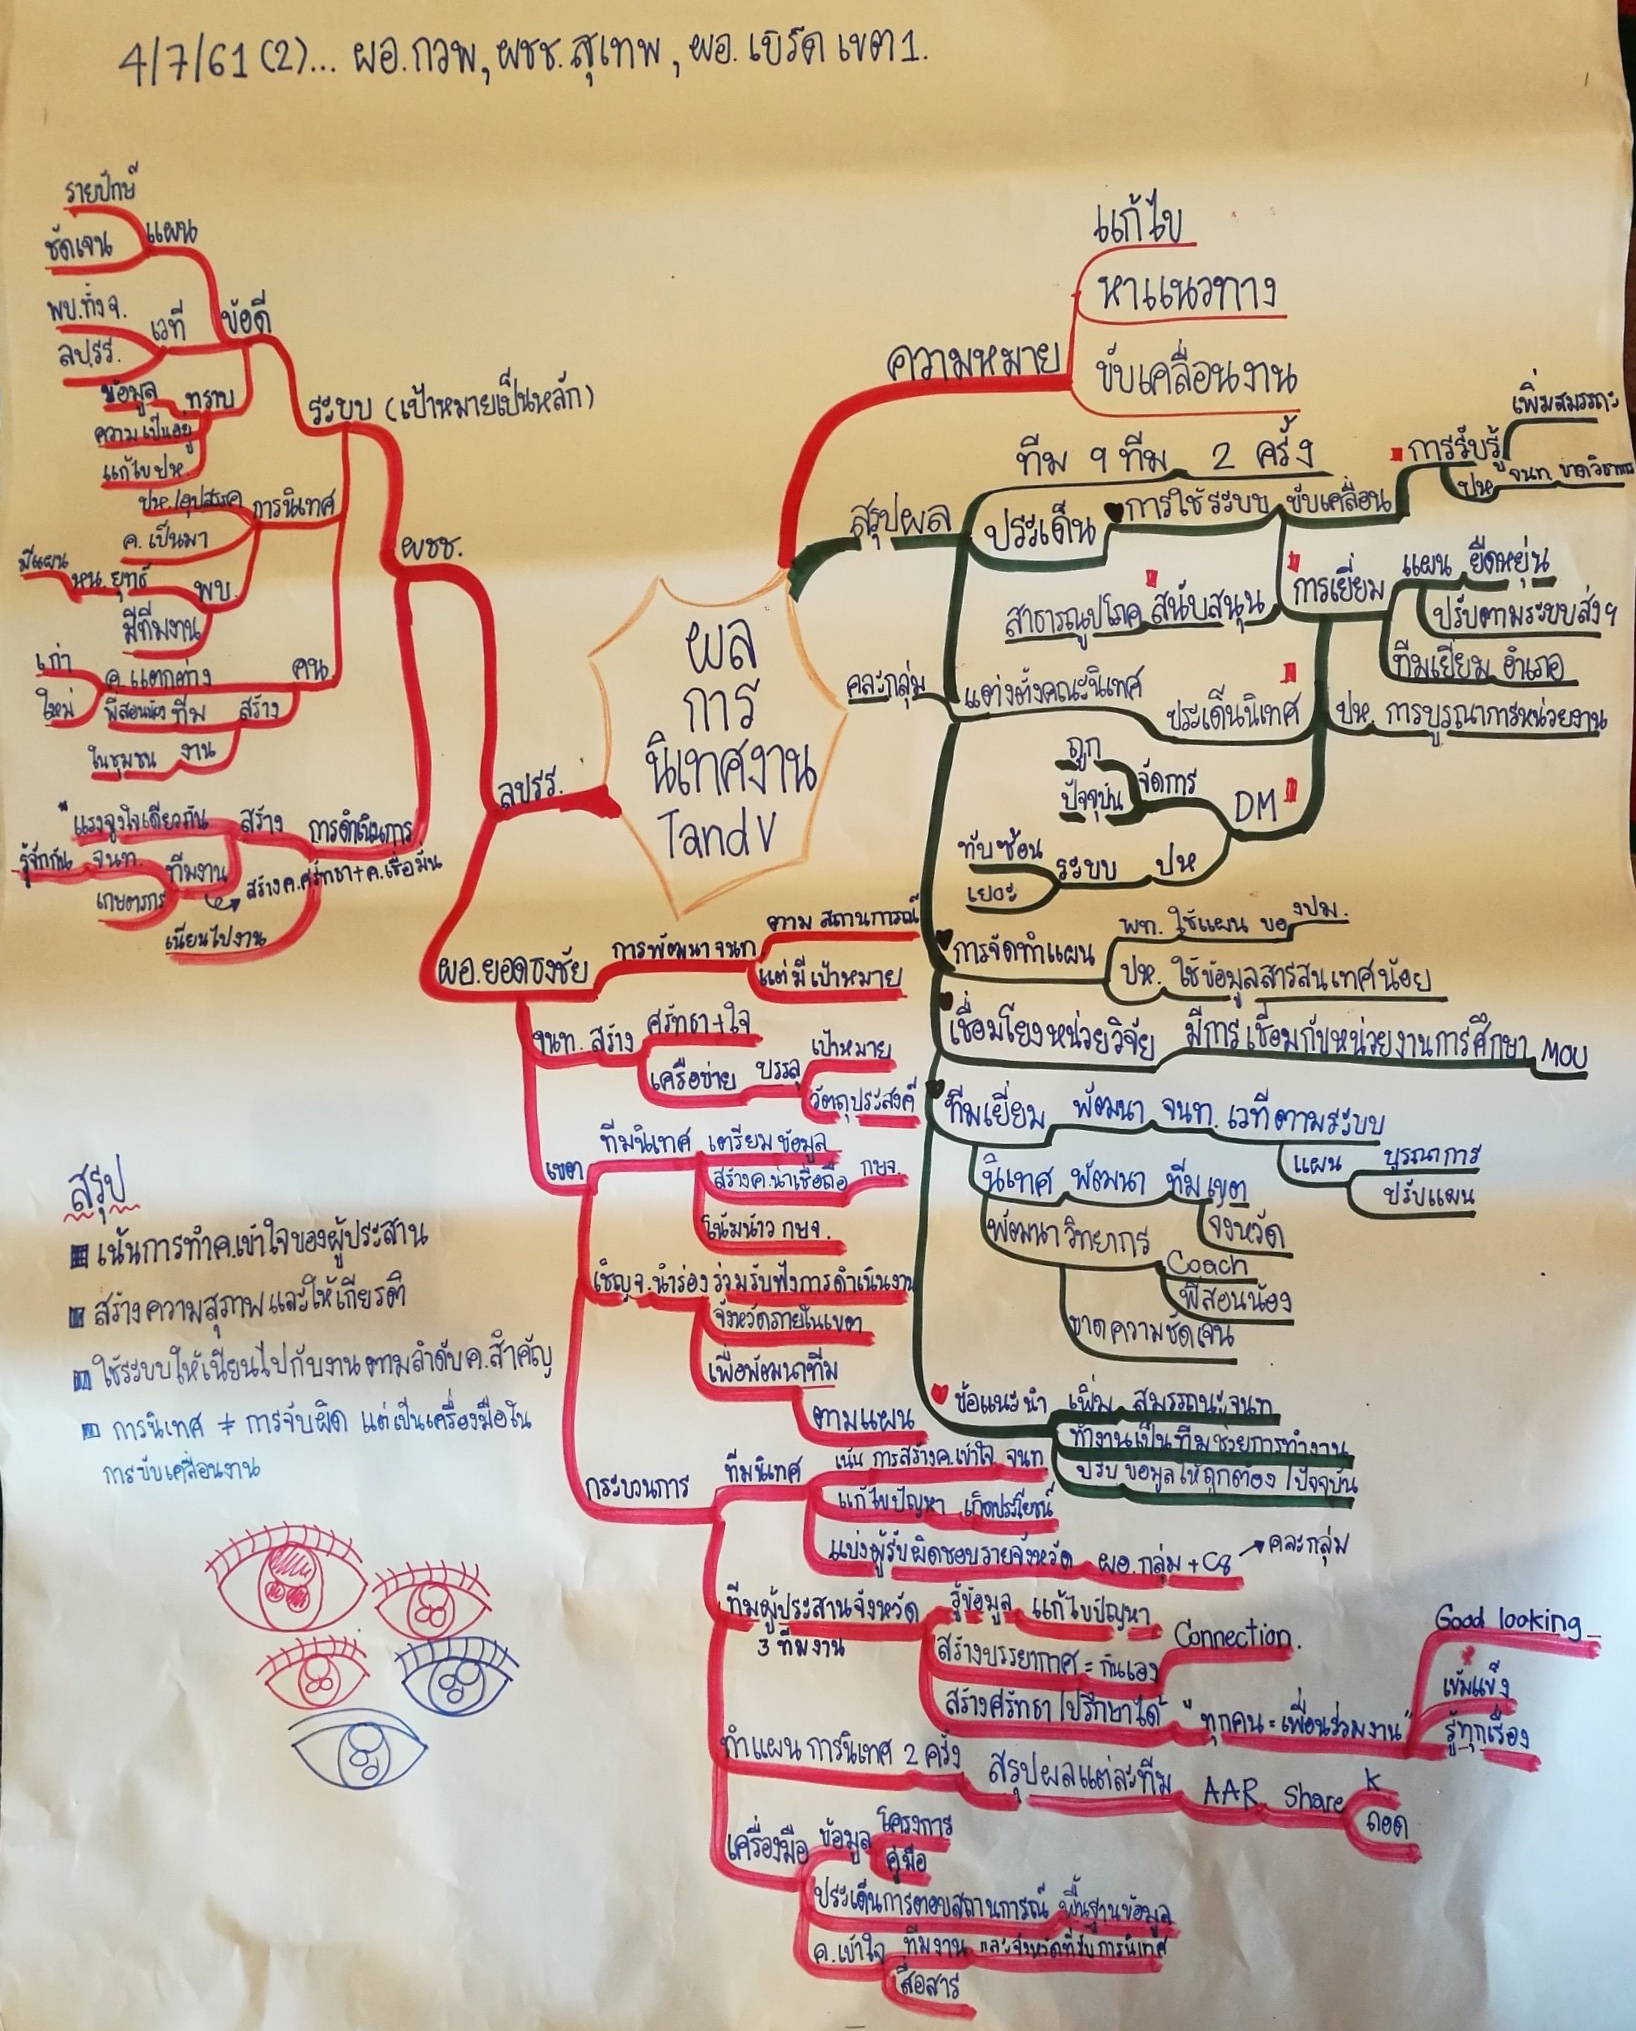 4/7/61 (2)... ผอ.กวพ, ผชช.สุเทพ, ผอ.เบิร์ด เขต 1.
ผล
การ
นิเทศงาน
Tand V
ความหมาย
แก้ไข
หาแนวทาง
ขับเคลื่อนงาน
สรุปผล
ทีม 9 ทีม 2 ครั้ง
ประเด็น
การใช้ระบบ ขับเคลื่อน
การรับรู้
เพิ่มสมรรถะ
ปห จนท. ขาดวิชาการ
การเยี่ยม
แผน ยืดหยุ่น
ปรับตามระบบส่งฯ
ทีมเยี่ยม อำเภอ
สาธารณูปโภค สนับสนุน
คละกลุ่ม
แต่งตั้งคณะนิเทศ
ประเด็นนิเทศ
ปห. การบูรณาการหน่วยงาน
DM
จัดการ
ถูก
ปัจจุบัน
ปห
ระบบ
ทับซ้อน
เยอะ
การจัดทำแผน
พท. ใช้แผน ของปม.
ปห. ใช้ข้อมูลสารสนเทศน้อย
เชื่อมโยงหน่วยวิจัย มีการเชื่อมกับหน่วยงานการศึกษา MOU
ทีมเยี่ยม พัฒนา จนท. เวทีตามระบบ
แผน
บูรณาการ
ปรับแผน
นิเทศ พัฒนา ทีมเขต
จังหวัด
พัฒนาวิทยากร
Coach
พี่สอนน้อง
ขาดความชัดเจน
ข้อแนะนำ
เพิ่ม สมรรถนะจนท
ทำงานเป็นทีมช่วยการทำงาน
ปรับ ข้อมูลให้ถูกต้อง/ปัจจุบัน
ลปรร.
ผชช.
ระบบ (เป้าหมายเป็นหลัก)
ข้อดี
แผน
รายปักษ์
ชัดเจน
เวที
พบ.ทั้งจ.
ลปรร.
ทราบ
ข้อมูล
ความเป็นอยู่
แก้ไขปห.
การนิเทศ
ปห./อุปสรรค
ค.เป็นมา
พบ.
หน.ยุทธ์
มีแผน
มีทีมงาน
คน
ค.แตกต่าง
เก่า
ใหม่
สร้าง
พี่สอนน้อง ทีม
ในชุมชน งาน
การดำเนินการ
สร้าง
"แรงจูงใจเดียวกัน
ทีมงาน
รู้จักกัน จนท.
เกษตรกร
สร้างค.ศรัทธา+ค.เชื่อมั่น
เนียนไปงาน
ผอ.ยอดธงชัย
การพัฒนาจนท
ตาม สถานการณ์
แต่มีเป้าหมาย
จนท. สร้าง
ศรัทธา+ใจ
เครือข่าย บรรลุ
เป้าหมาย
วัตถุประสงค์
เขต
ทีมนิเทศ เตรียมข้อมูล
สร้างค.น่าเชื่อถือ กษจ.
โน้มน้าว กษจ.
เชิญจ.นำร่อง ร่วมรับฟังการดำเนินงาน
จังหวัดภายในเขต
เพื่อพัฒนาทีม
ตามแผน
กระบวนการ
ทีมนิเทศ
เน้น การสร้างค.เข้าใจ จนท
แก้ไขปัญหา เกิดประโยชน์
แบ่งผู้รับผิดชอบรายจังหวัด ผอ.กลุ่ม + C8 → คละกลุ่ม
ทีมผู้ประสานจังหวัด
3 ทีมงาน
รู้ข้อมูล แก้ไขปัญหา
สร้างบรรยากาศ = กันเอง Connection.
สร้างศรัทธา/ปรึกษาได้ "ทุกคน = เพื่อนร่วมงาน"
Good looking
เข้มแข็ง
รู้ทุกเรื่อง
ทำแผนการนิเทศ 2 ครั้ง สรุปผลแต่ละทีม AAR Share
K
ถอด
เครื่องมือ
ข้อมูล
โครงการ
คู่มือ
ประเด็นการตอบสถานการณ์ พื้นฐานข้อมูล
ค.เข้าใจ ทีมงาน และจังหวัดที่รับการนิเทศ
สื่อสาร
สรุป
เน้นการทำค.เข้าใจของผู้ประสาน
สร้างความสุภาพและให้เกียรติ
ใช้ระบบให้เนียนไปกับงานตามลำดับค.สำคัญ
การนิเทศ ≠ การจับผิด แต่เป็นเครื่องมือใน
การขับเคลื่อนงาน